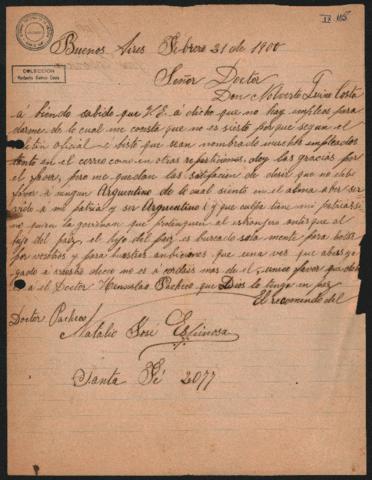 COLECCIÓN
Norberto Quirno Costa
Buenos Aires Febrero 21 de 1900
Señor Doctor
Don Nolverto Quirno Costa
á biendo sabido que V.E. á dicho que no hay empleos para
darme de lo cual me consta que no es sierto porque segun el
letin oficial e bisto que sean nombrado muchos empleados
tanto en el correo como en otras reparticiones, doy las gracias por
el favor, pero me quedan las satifacion de desir que no debo
favor á ningun Argentino de lo cual siento en el alma aber ser
vido á mi patria y ser Argentino y que culpa tiene mi patria si
los que la goviernan que protenguen al estranjero antes que al
hijo del pais, el hijo del pais es buscado sola mente para botar
por vechos y para nuestras ambiciones que una ves que abeis
gado á nuestro deceo no es a cordais mas de el, unico favor que debo
a el Doctor Wenceslao Pacheco que Dios lo tenga en paz
El recomendo del
Doctor Pacheco
Natalio José Espinosa
Santa Fé 2077